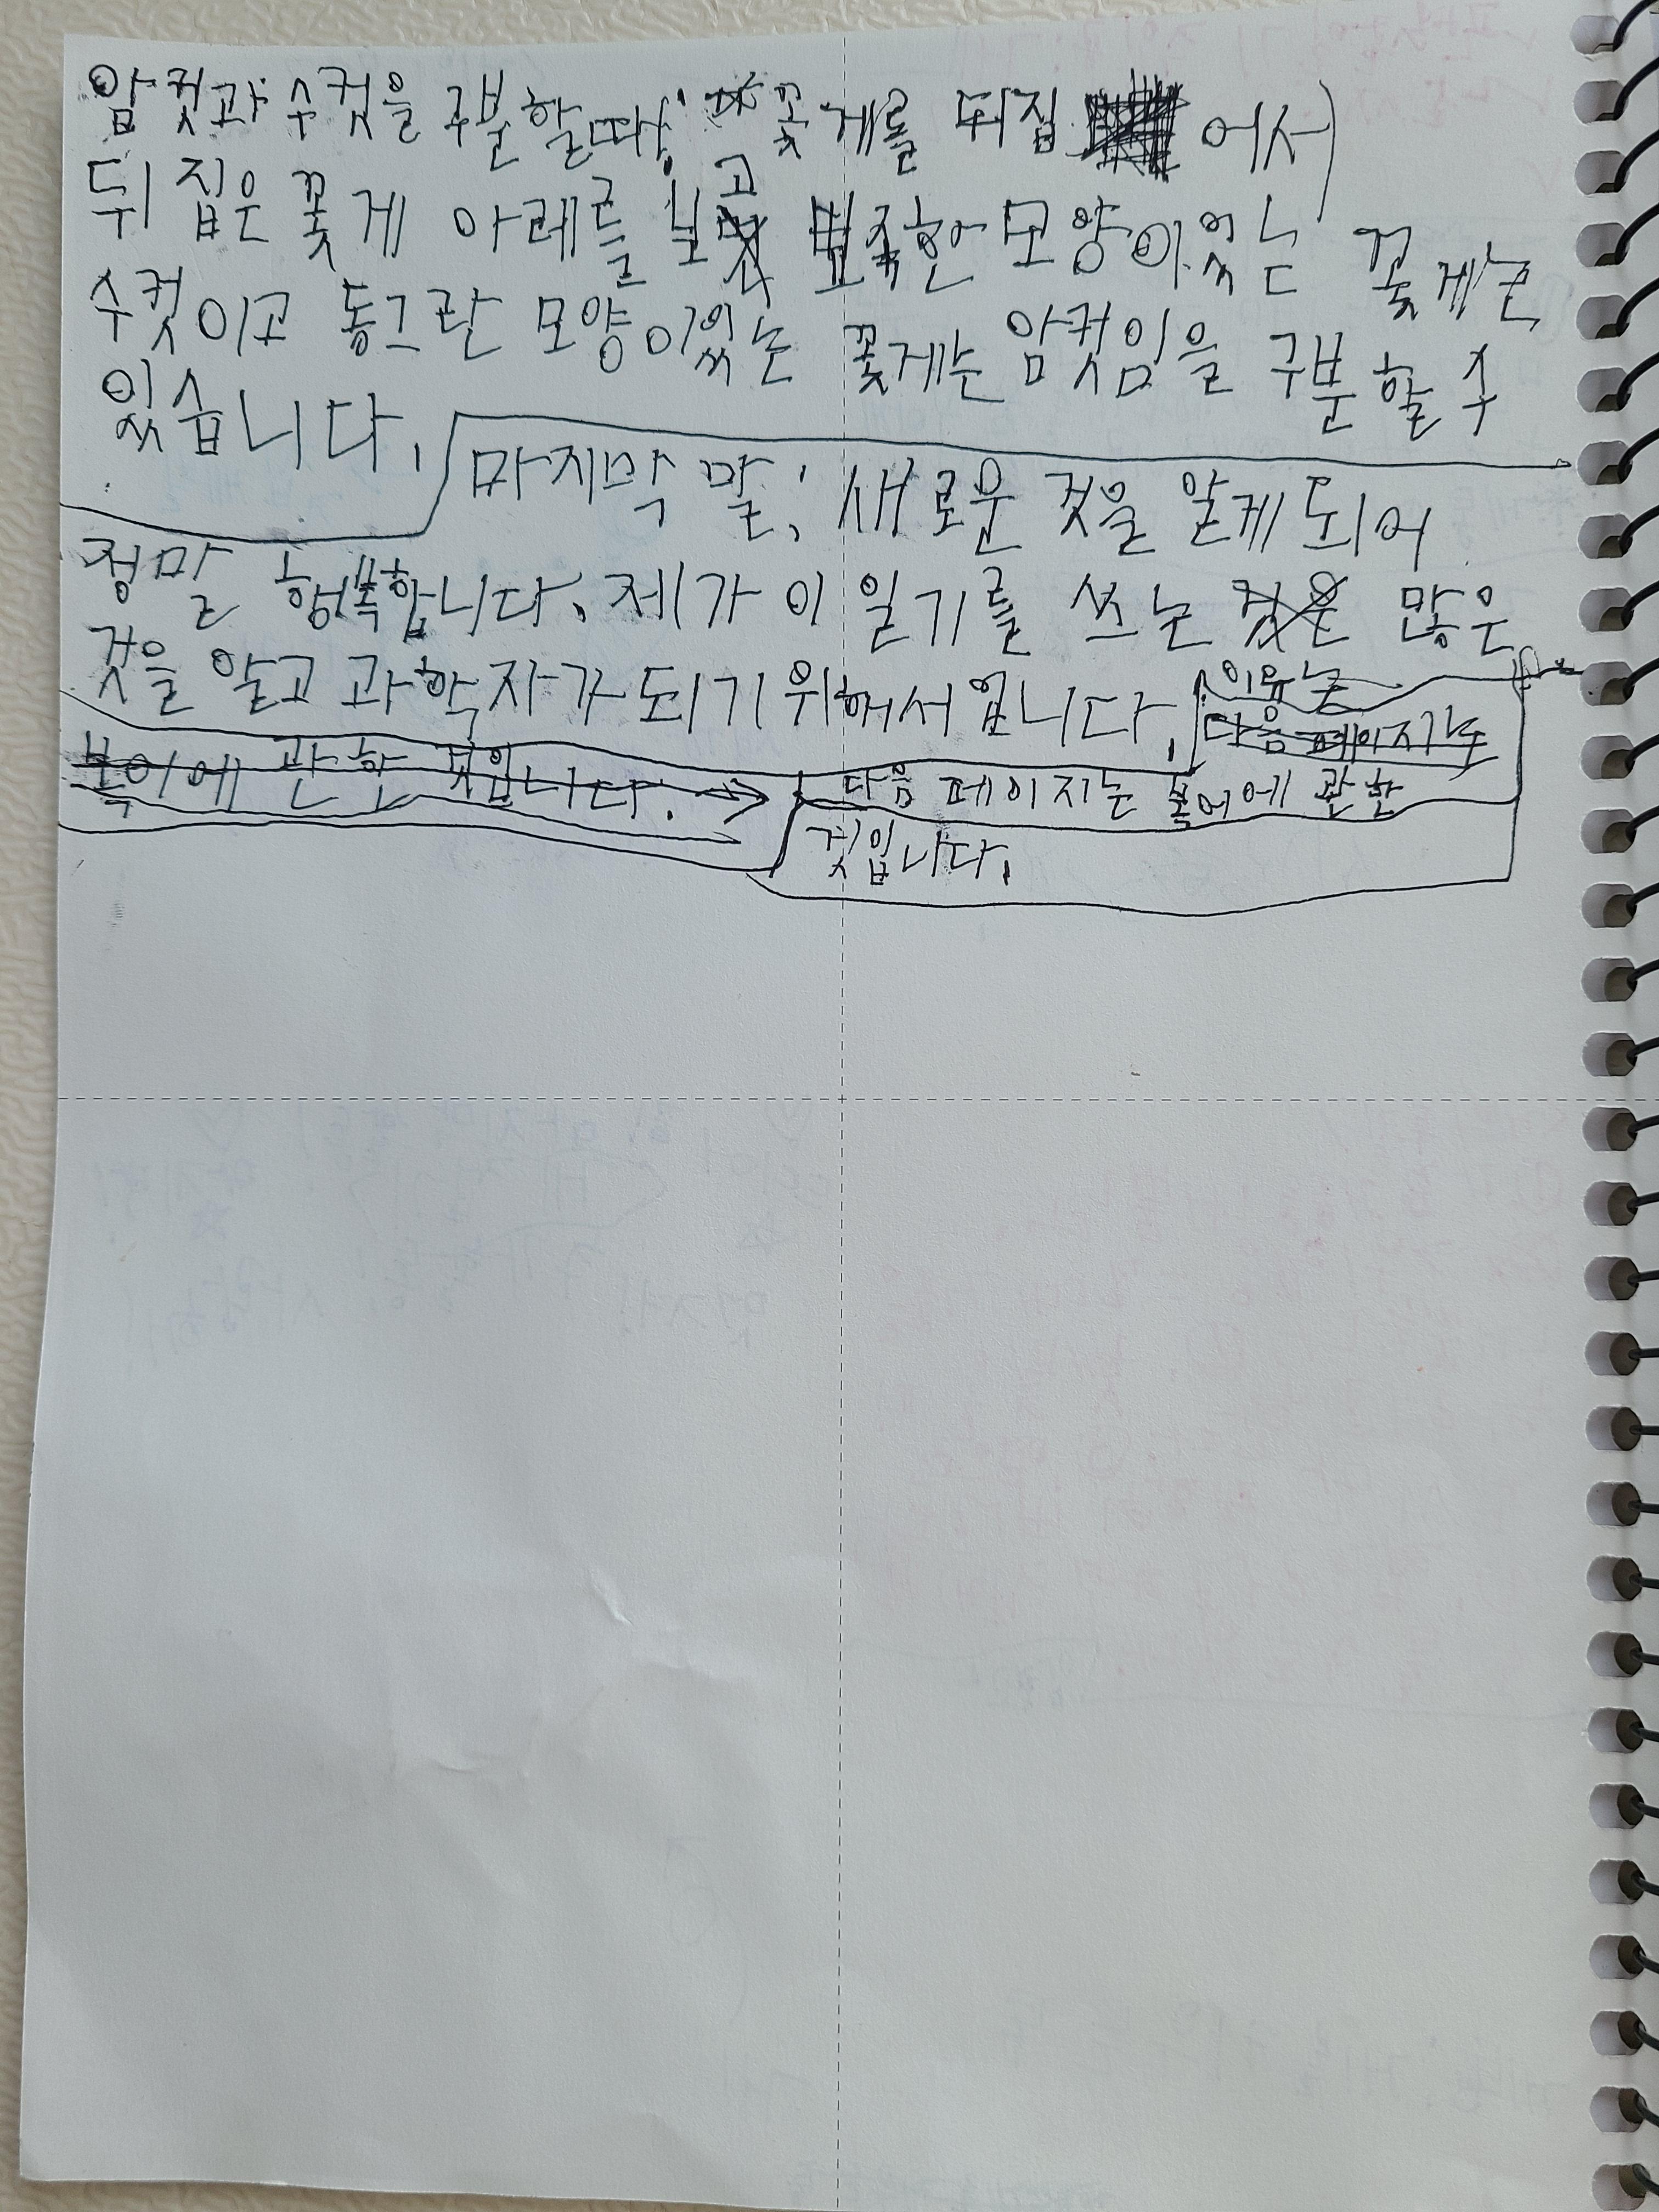 암컷과 수컷을 구분할 때, 꽃게를 뒤집어서
뒤집은 꽃게 아레를 보고 뾰족한 모양이 있는 꽃게는
수컷이고 동그란 모양이 있는 꽃게는 암컷임을 구분할 수
있습니다.
마지막 말; 새로운 것을 알게 되어
정말 행복합니다. 제가 이 일기를 쓰는 이유는 많은
것을 알고 과학자가 되기 위해서입니다.
다음 페이지는
복어에 관한 것입니다. → 다음 페이지는 복어에 관한
것입니다.